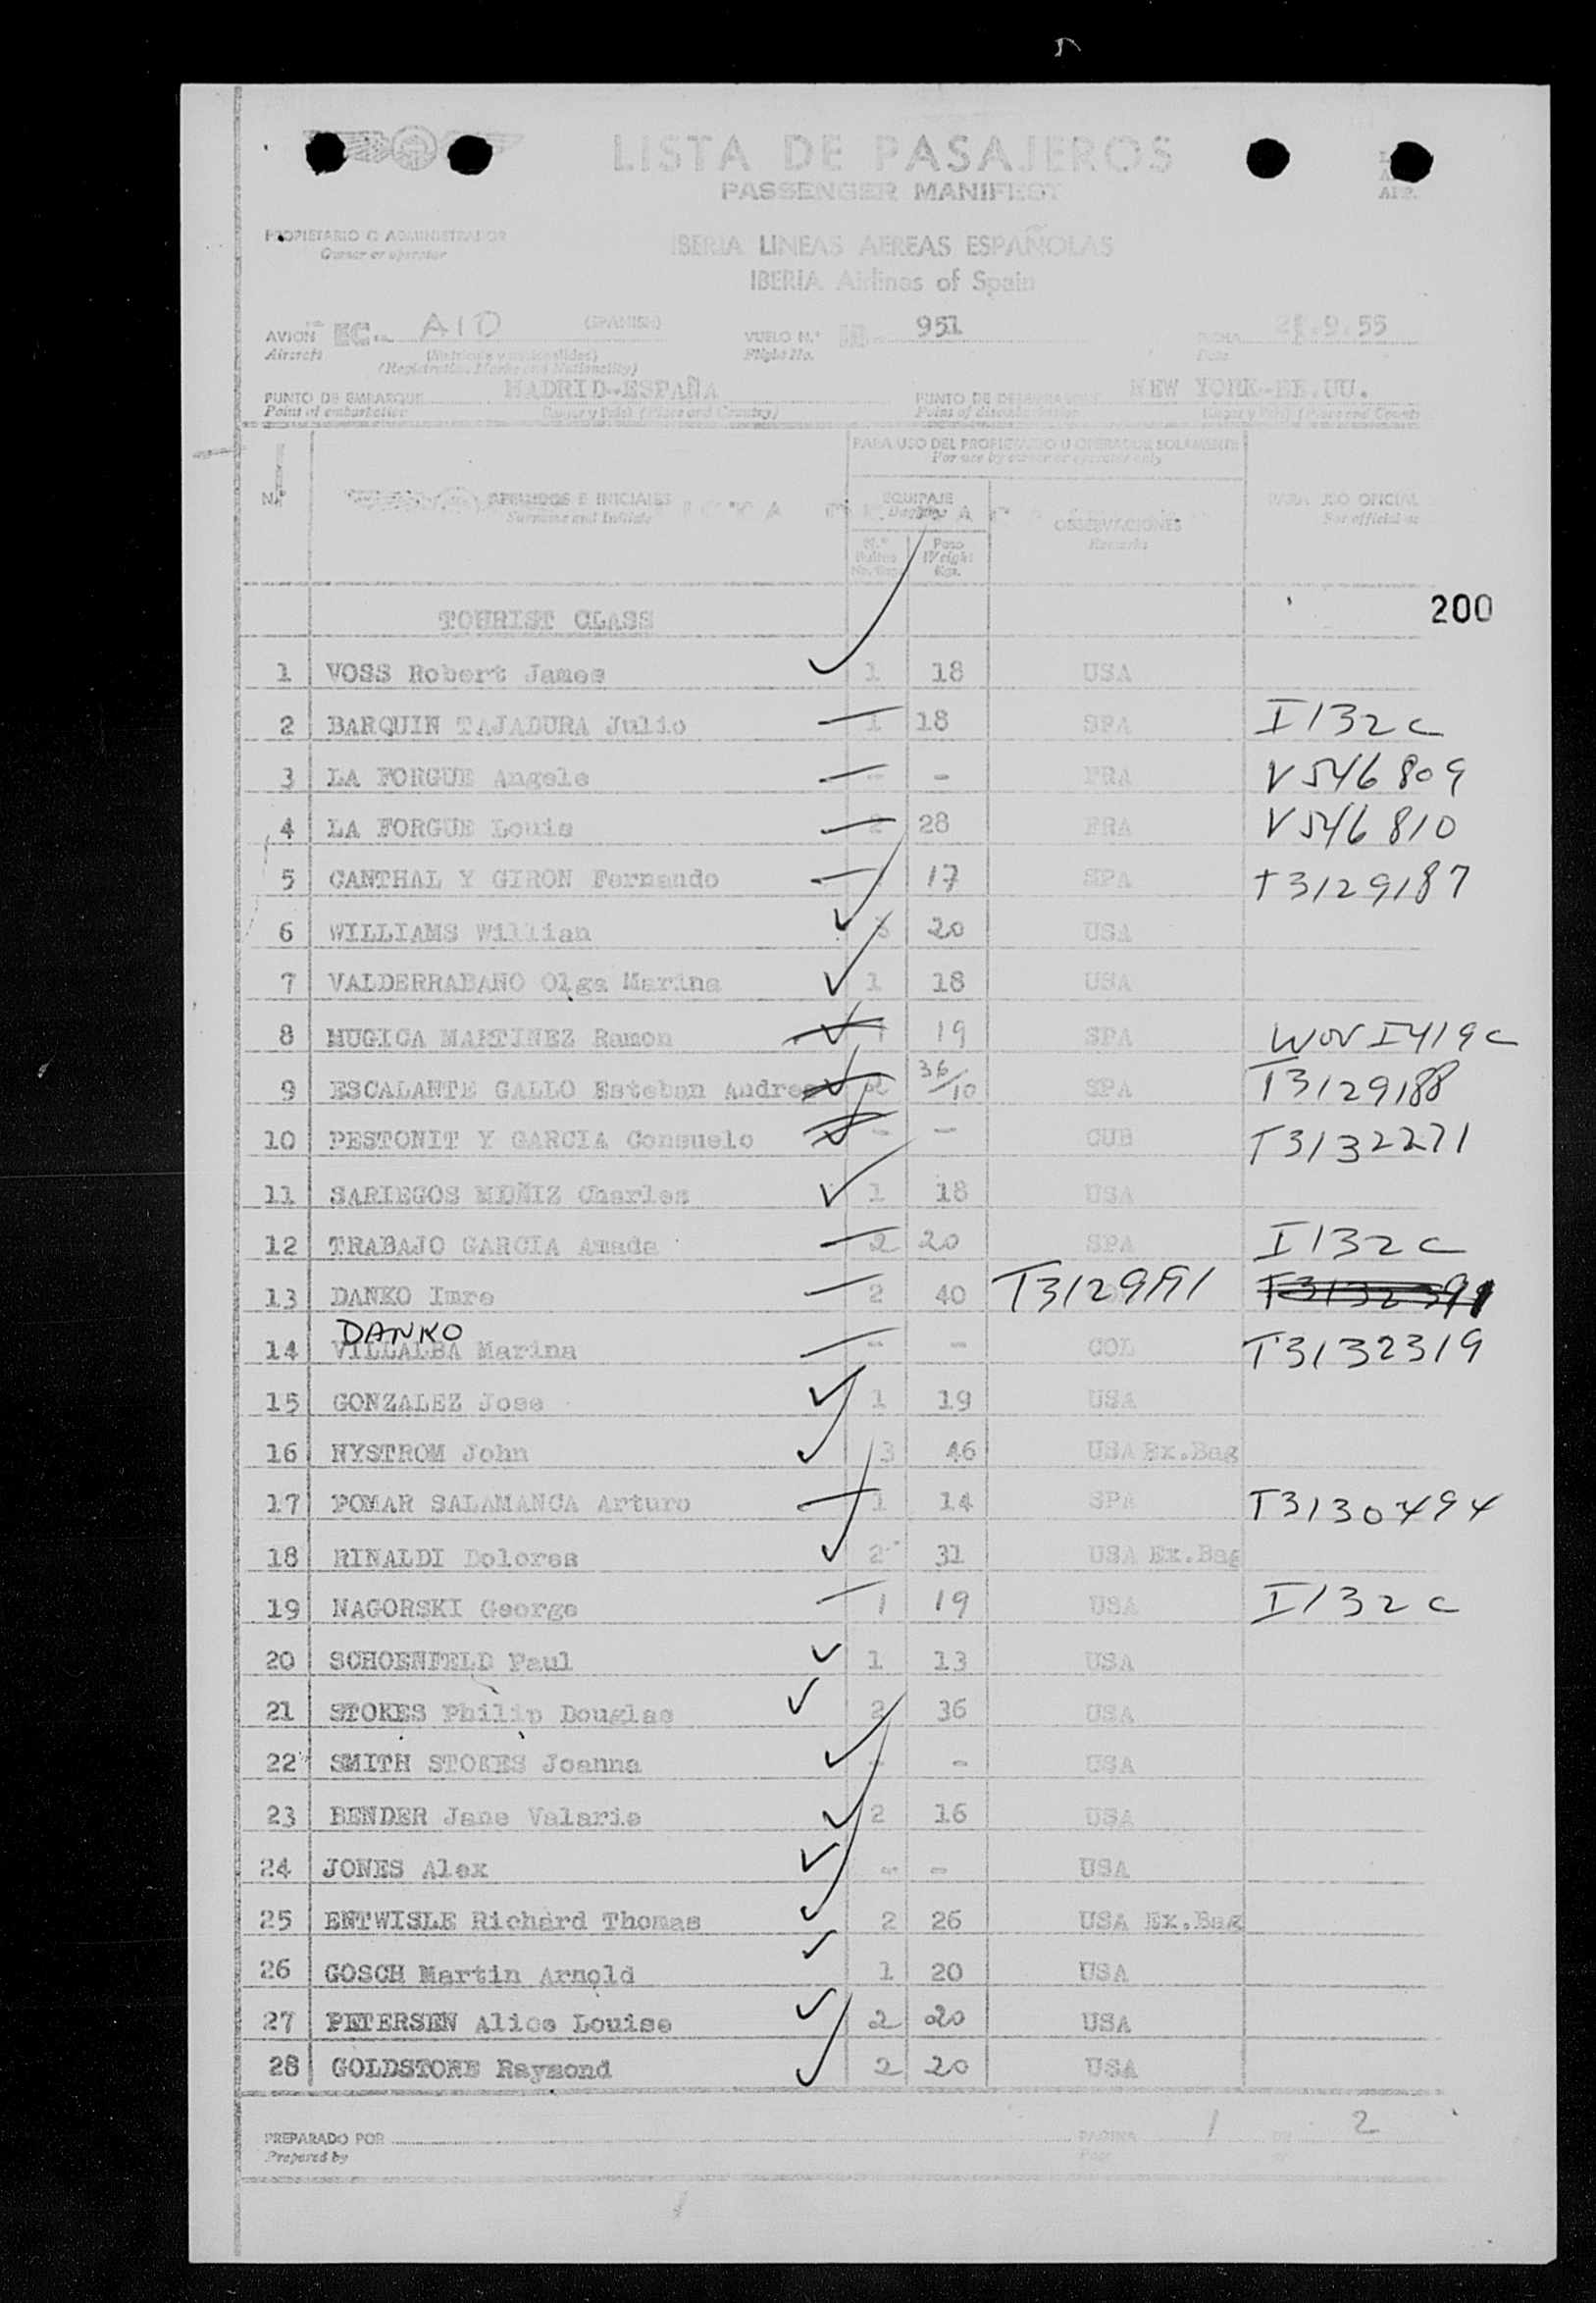 LISTA DE PASAJEROS
PASSENGER MANIFEST
PROPIETARIO O ADMINISTRADOR
Owner or operator
IBERIA LINEAS AEREAS ESPAÑOLAS
IBERIA Airlines of Spain
AVION EC- AID (SPANISH) VUELO N.° 951 .9.55
Aircraft (Matrícula y nacionalidad) Flight No. Date
(Registration Marks and Nationality)
PUNTO DE EMBARQUE MADRID-ESPAÑA PUNTO DE DESEMBARQUE NEW YORK-EE.UU.
Point of embarkation (Lugar y País) (Place and Country) Point of disembarkation (Lugar y País) (Place and Country
PARA USO DEL PROPIETARIO U OPERADOR SOLAMENTE
For use by owner or operator only
N.° APELLIDOS E INICIALES EQUIPAJE OBSERVACIONES PARA USO OFICIAL
Surname and Initials Baggage Remarks For official us
N.° Bultos Peso
No. Bag. Weight Kgs.
TOURIST CLASS 200
1 VOSS Robert James 1 18 USA
2 BARQUIN TAJADURA Julio 1 18 SPA I132c
3 LA FORGUE Angele - - FRA V546809
4 LA FORGUE Louis 2 28 FRA V546810
5 CANTHAL Y GIRON Fernando 17 SPA T3129187
6 WILLIAMS Willian 3 20 USA
7 VALDERRABANO Olga Marina 1 18 USA
8 MUGICA MARTINEZ Ramon 1 19 SPA WOV I419c
9 ESCALANTE GALLO Esteban Andres 2 36/10 SPA T3129188
10 PESTONIT Y GARCIA Consuelo - - CUB T3132271
11 SARIEGOS MUÑIZ Charles 1 18 USA
12 TRABAJO GARCIA Amada 2 20 SPA I132c
13 DANKO Imre 2 40 T3129191
DANKO
14 VILLALBA Marina - - COL T3132319
15 GONZALEZ Jose 1 19 USA
16 NYSTROM John 3 46 USA Ex.Bag
17 POMAR SALAMANCA Arturo 1 14 SPA T3130494
18 RINALDI Dolores 2 31 USA Ex.Bag
19 NAGORSKI George 1 19 USA I132c
20 SCHOENFELD Paul 1 13 USA
21 STOKES Philip Douglas 2 36 USA
22 SMITH STOKES Joanna - - USA
23 BENDER Jane Valarie 2 16 USA
24 JONES Alex - - USA
25 ENTWISLE Richard Thomas 2 26 USA Ex.Bag
26 GOSCH Martin Arnold 1 20 USA
27 PETERSEN Alice Louise 2 20 USA
28 GOLDSTONE Raymond 2 20 USA
PREPARADO POR PAGINA 1 DE 2
Prepared by Page of